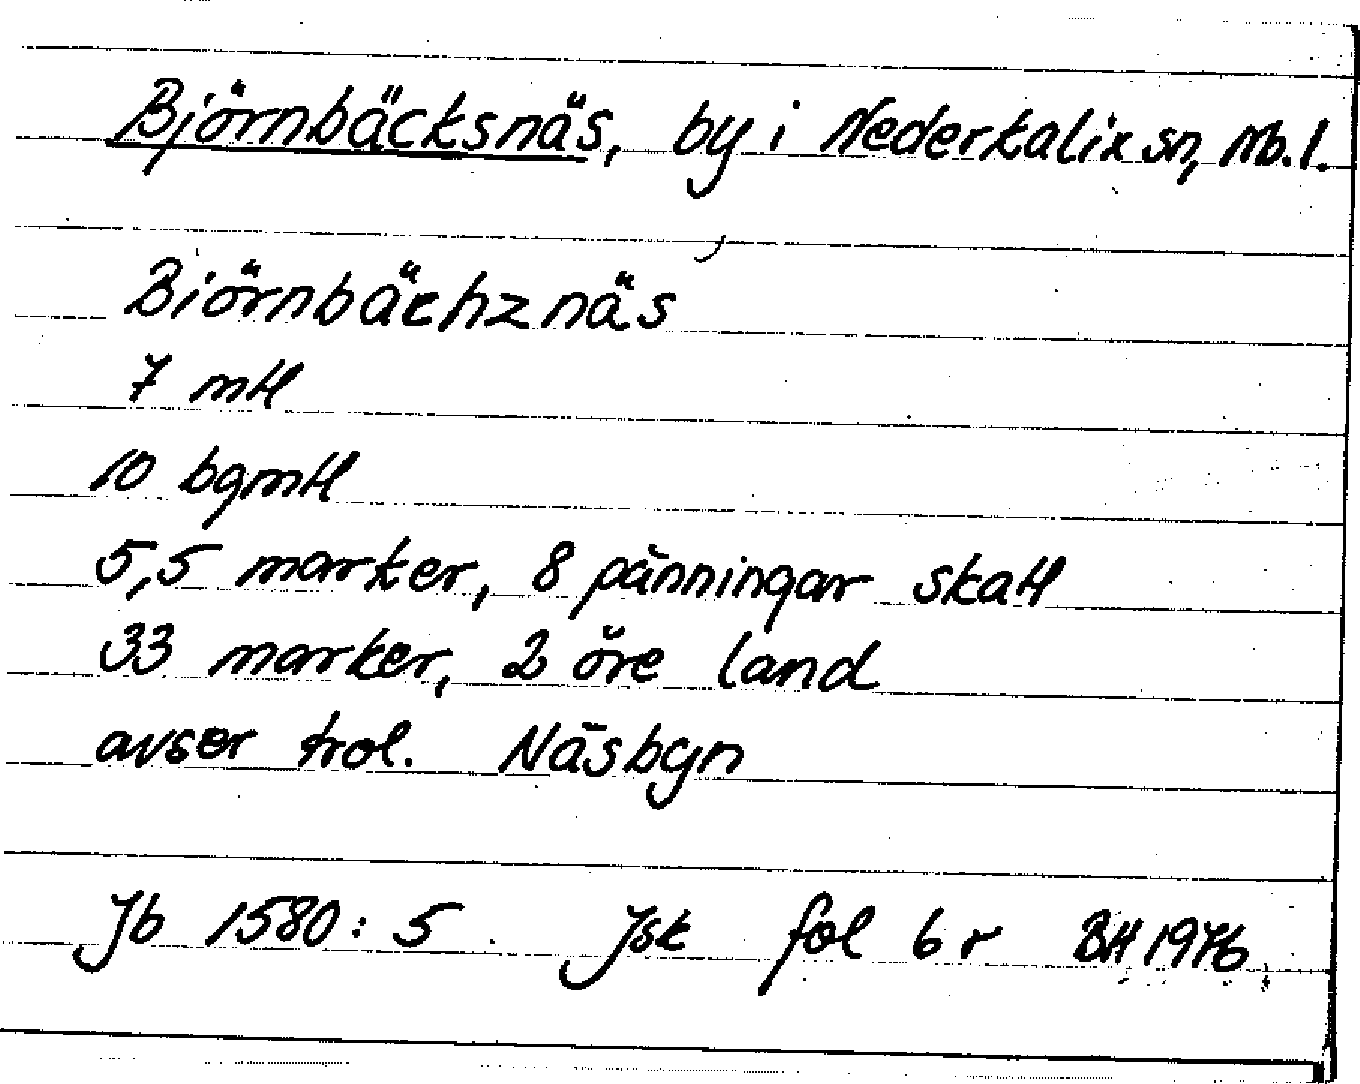 Björnbäcksnäs, by i Nederkalix sn, Nb. l.
Biörnbächznäs
7 mtl
10 bgmtl
5,5 marker, 8 pänningar skatt
33 marker, 2 öre land
avser trol. Näsbyn
Jb 1580:5 Jsk fol 6 r BH 1976